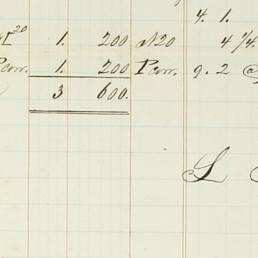 4. 1.
20 1. 200 N20 4 1/4.
corr. 1. 200 Pcorr. 9. 2 @
3 600.
L